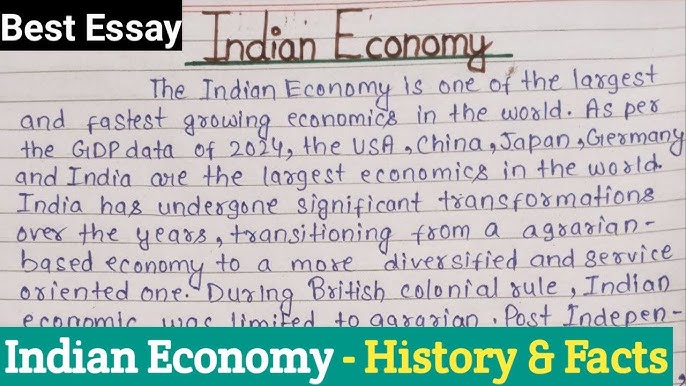 Best Essay
Indian Economy
The Indian Economy is one of the largest
and fastest growing economics in the world. As per
the GDP data of 2024, the USA, China, Japan, Germany
and India are the largest economics in the world.
India has undergone significant transformations
over the years, transitioning from a agrarian-
based economy to a more diversified and service
oriented one. During British colonial rule, Indian
economic was limited to agrarian. Post Indepen-
Indian Economy - History & Facts